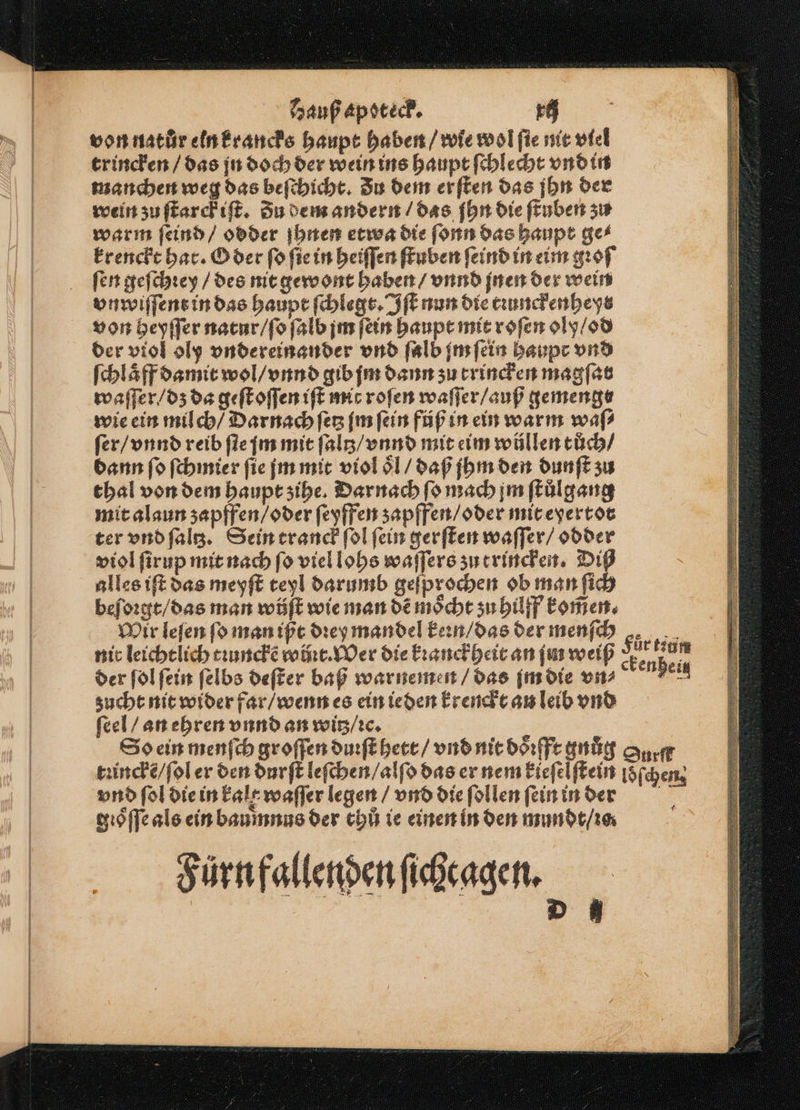 Hauß apoteck. xij
von natůr ein krancks haupt haben / wie wol ſie nit viel
trincken / das jn doch der wein ins haupt ſchlecht vnd in
manchen weg das beſchicht. Zu dem erſten das jhn der
wein zu ſtarck iſt. Zu dem andern / das jhn die ſtuben zu
warm ſeind / odder jhnen etwa die ſonn das haupt ge⸗
krenckt hat. Oder ſo ſie in heiſſen ſtuben ſeind in eim groſ
ſen geſchrey / des nit gewont haben / vnnd jnen der wein
vnwiſſent in das haupt ſchlegt. Iſt nun die trunckenheyt
von heyſſer natur / ſo ſalb jm ſein haupt mit roſen oly / od
der viol oly vndereinander vnd ſalb jm ſein haupt vnd
ſchlåff damit wol / vnnd gib jm dann zu trincken magſat
waſſer / dz da geſtoſſen iſt mit roſen waſſer / auß gemengt
wie ein milch / Darnach ſetz jm ſein füß in ein warm waſ⸗
ſer / vnnd reib ſie jm mit ſaltz / vnnd mit eim wüllen tůch /
dann ſo ſchmier ſie jm mit viol ôl / daß jhm den dunſt zu
thal von dem haupt zihe. Darnach ſo mach jm ſtůlgang
mit alaun zapffen / oder ſeyffen zapffen / oder mit eyertot
ter vnd ſaltz. Sein tranck ſol ſein gerſten waſſer / odder
viol ſirup mit nach ſo viel lohs waſſers zu trincken. Diß
alles iſt das meyſt teyl darumb geſprochen ob man ſich
beſorgt / das man wüſt wie man dē môcht zu hilff kom̃en.
Wir leſen ſo man ißt drey mandel kern / das der menſch
nit leichtlich trunckē wirt. Wer die kranckheit an jm weiß
Für trun
ckenheit
der ſol ſein ſelbs deſter baß warnemen / das jm die vn⸗
zucht nit wider far / wenn es ein ieden krenckt an leib vnd
ſeel / an ehren vnnd an witz / ꝛc.
So ein menſch groſſen durſt hett / vnd nit dôrfft gnůg
Durſt
trinckē / ſol er den durſt leſchen / alſo das er nem kieſelſtein
lôſchen.
vnd ſol die in kalt waſſer legen / vnd die ſollen ſein in der
grôſſe als ein baumnus der thů ie einen in den mundt / ꝛc.
Fürn fallenden ſichtagen.
D ij